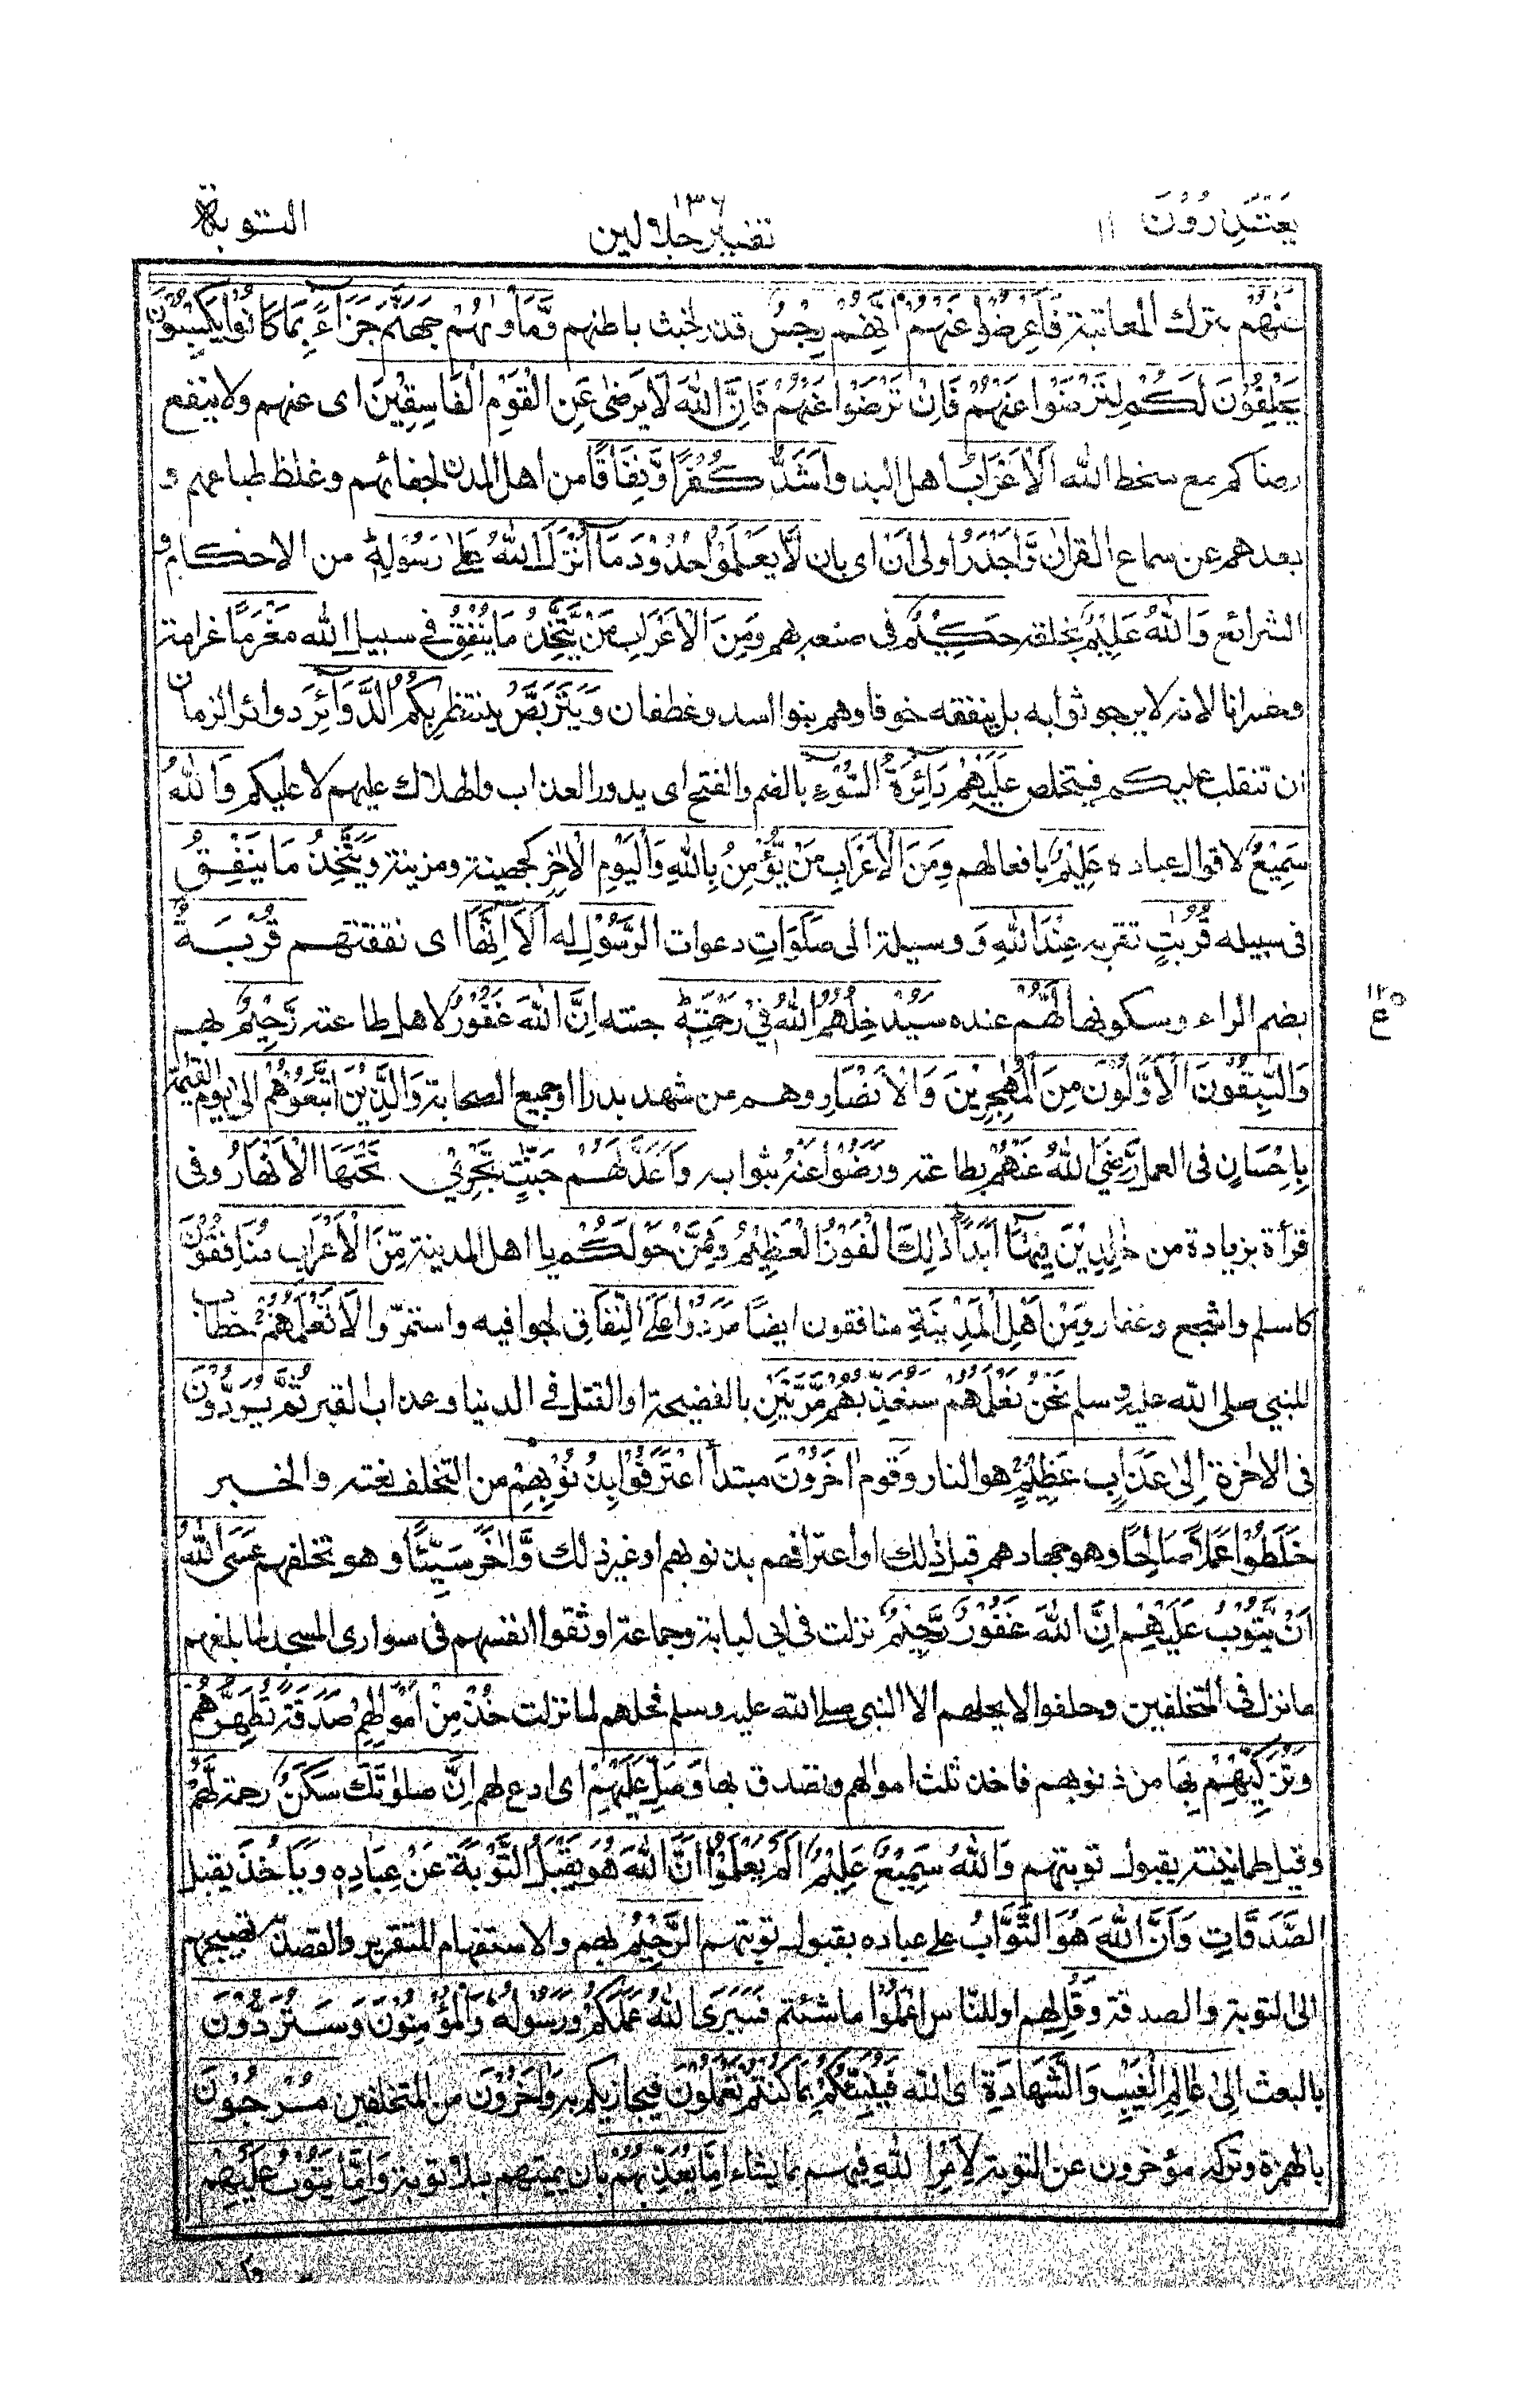 يَعْتَذِرُوْنَ ١١
١٣٦
تفسير جلالين
التوبة
عَنْهُمْ بترك المعاتبة فَاَعْرِضُوْا عَنْهُمْ اِنَّهُمْ رِجْسٌ قذر لخبث باطنهم وَّمَاْوٰىهُمْ جَهَنَّمُ جَزَآءً بِمَا كَانُوْا يَكْسِبُوْنَ
يَحْلِفُوْنَ لَكُمْ لِتَرْضَوْا عَنْهُمْ فَاِنْ تَرْضَوْا عَنْهُمْ فَاِنَّ اللّٰهَ لَا يَرْضٰى عَنِ الْقَوْمِ الْفَاسِقِيْنَ اى عنهم ولا ينفع
رضاكم مع سخط الله اَلْاَعْرَابُ اهل البدو اَشَدُّ كُفْرًا وَّنِفَاقًا من اهل المدن لجفائهم وغلظ طباعهم و
بعدهم عن سماع القران وَّاَجْدَرُ اولى اَنْ اى بان لَّا يَعْلَمُوْا حُدُوْدَ مَآ اَنْزَلَ اللّٰهُ عَلٰى رَسُوْلِهٖ من الاحكام و
الشرائع وَاللّٰهُ عَلِيْمٌ بخلقه حَكِيْمٌ فى صنعه بهم وَمِنَ الْاَعْرَابِ مَنْ يَّتَّخِذُ مَا يُنْفِقُ فى سبيل الله مَغْرَمًا غرامة
وخسرانا لانه لا يرجو ثوابه بل ينفقه خوفا وهم بنوا اسد وغطفان وَّيَتَرَبَّصُ ينتظر بِكُمُ الدَّوَآئِرَ دوائر الزمان
ان تنقلب عليكم فيتخلص عَلَيْهِمْ دَآئِرَةُ السَّوْءِ بالضم والفتح اى يدور العذاب والهلاك عليهم لا عليكم وَاللّٰهُ
سَمِيْعٌ لاقوال عباده عَلِيْمٌ بافعالهم وَمِنَ الْاَعْرَابِ مَنْ يُّؤْمِنُ بِاللّٰهِ وَالْيَوْمِ الْاٰخِرِ كجهينة ومزينة وَيَتَّخِذُ مَا يُنْفِقُ
فى سبيله قُرُبٰتٍ تقربه عِنْدَ اللّٰهِ وَ وسيلة الى صَلَوَاتِ دعوات الرَّسُوْلِ له اَلَآ اِنَّهَا اى نفقتهم قُرْبَةٌ
بضم الراء وسكونها لَّهُمْ عنده سَيُدْخِلُهُمُ اللّٰهُ فِيْ رَحْمَتِهٖ جنته اِنَّ اللّٰهَ غَفُوْرٌ لاهل طاعته رَّحِيْمٌ بهم
ع
وَالسّٰبِقُوْنَ الْاَوَّلُوْنَ مِنَ الْمُهٰجِرِيْنَ وَالْاَنْصَارِ وهم من شهد بدرا او جميع الصحابة وَالَّذِيْنَ اتَّبَعُوْهُمْ الى يوم القيٰمة
بِاِحْسَانٍ فى العمل رَّضِيَ اللّٰهُ عَنْهُمْ بطاعته وَرَضُوْا عَنْهُ بثوابه وَاَعَدَّ لَهُمْ جَنّٰتٍ تَجْرِيْ تَحْتَهَا الْاَنْهَارُ وفى
قرأة بزيادة من خٰلِدِيْنَ فِيْهَآ اَبَدًا ذٰلِكَ الْفَوْزُ الْعَظِيْمُ وَمِمَّنْ حَوْلَكُمْ يا اهل المدينة مِّنَ الْاَعْرَابِ مُنَافِقُوْنَ
كاسلم واشجع وغفار وَمِنْ اَهْلِ الْمَدِيْنَةِ منافقون ايضًا مَرَدُوْا عَلَى النِّفَاقِ لجوا فيه واستمرّوا لَا تَعْلَمُهُمْ خطاب
للنبي صلى الله عليه وسلم نَحْنُ نَعْلَمُهُمْ سَنُعَذِّبُهُمْ مَّرَّتَيْنِ بالفضيحة او القتل فى الدنيا وعذاب القبر ثُمَّ يُرَدُّوْنَ
فى الاٰخرة اِلٰى عَذَابٍ عَظِيْمٍ هو النار وَ قوم اٰخَرُوْنَ مبتدأ اعْتَرَفُوْا بِذُنُوْبِهِمْ من التخلف نعته والخبر
خَلَطُوْا عَمَلًا صَالِحًا وهو جهادهم قبل ذٰلك او اعترافهم بذنوبهم او غير ذٰلك وَّاٰخَرَ سَيِّئًا وهو تخلفهم عَسَى اللّٰهُ
اَنْ يَّتُوْبَ عَلَيْهِمْ اِنَّ اللّٰهَ غَفُوْرٌ رَّحِيْمٌ نزلت فى ابى لبابة وجماعة اوثقوا انفسهم فى سوارى المسجد لما بلغهم
ما نزل فى المتخلفين وحلفوا لا يحلهم الا النبى صلى الله عليه وسلم فحلهم لما نزلت خُذْ مِنْ اَمْوَالِهِمْ صَدَقَةً تُطَهِّرُهُمْ
وَتُزَكِّيْهِمْ بِهَا من ذنوبهم فاخذ ثلث اموالهم وتصدق بها وَصَلِّ عَلَيْهِمْ اى ادع لهم اِنَّ صَلٰوتَكَ سَكَنٌ رحمة لَّهُمْ
وقيل طمانينة بقبول توبتهم وَاللّٰهُ سَمِيْعٌ عَلِيْمٌ اَلَمْ يَعْلَمُوْا اَنَّ اللّٰهَ هُوَ يَقْبَلُ التَّوْبَةَ عَنْ عِبَادِهٖ وَيَاْخُذُ يقبل
الصَّدَقَاتِ وَاَنَّ اللّٰهَ هُوَ التَّوَّابُ على عباده بقبول توبتهم الرَّحِيْمُ بهم والاستفهام للتقرير والقصد تهييجهم
الى التوبة والصدقة وَقُلِ لهم او للناس اعْمَلُوْا ما شئتم فَسَيَرَى اللّٰهُ عَمَلَكُمْ وَرَسُوْلُهٗ وَالْمُؤْمِنُوْنَ وَسَتُرَدُّوْنَ
بالبعث اِلٰى عٰالِمِ الْغَيْبِ وَالشَّهَادَةِ اى الله فَيُنَبِّئُكُمْ بِمَا كُنْتُمْ تَعْمَلُوْنَ فيجازيكم به وَاٰخَرُوْنَ من المتخلفين مُرْجَوْنَ
بالهمزة وتركه مؤخرون عن التوبة لِاَمْرِ اللّٰهِ فيهم بما يشاء اِمَّا يُعَذِّبُهُمْ بان يميتهم بلا توبة وَاِمَّا يَتُوْبُ عَلَيْهِمْ